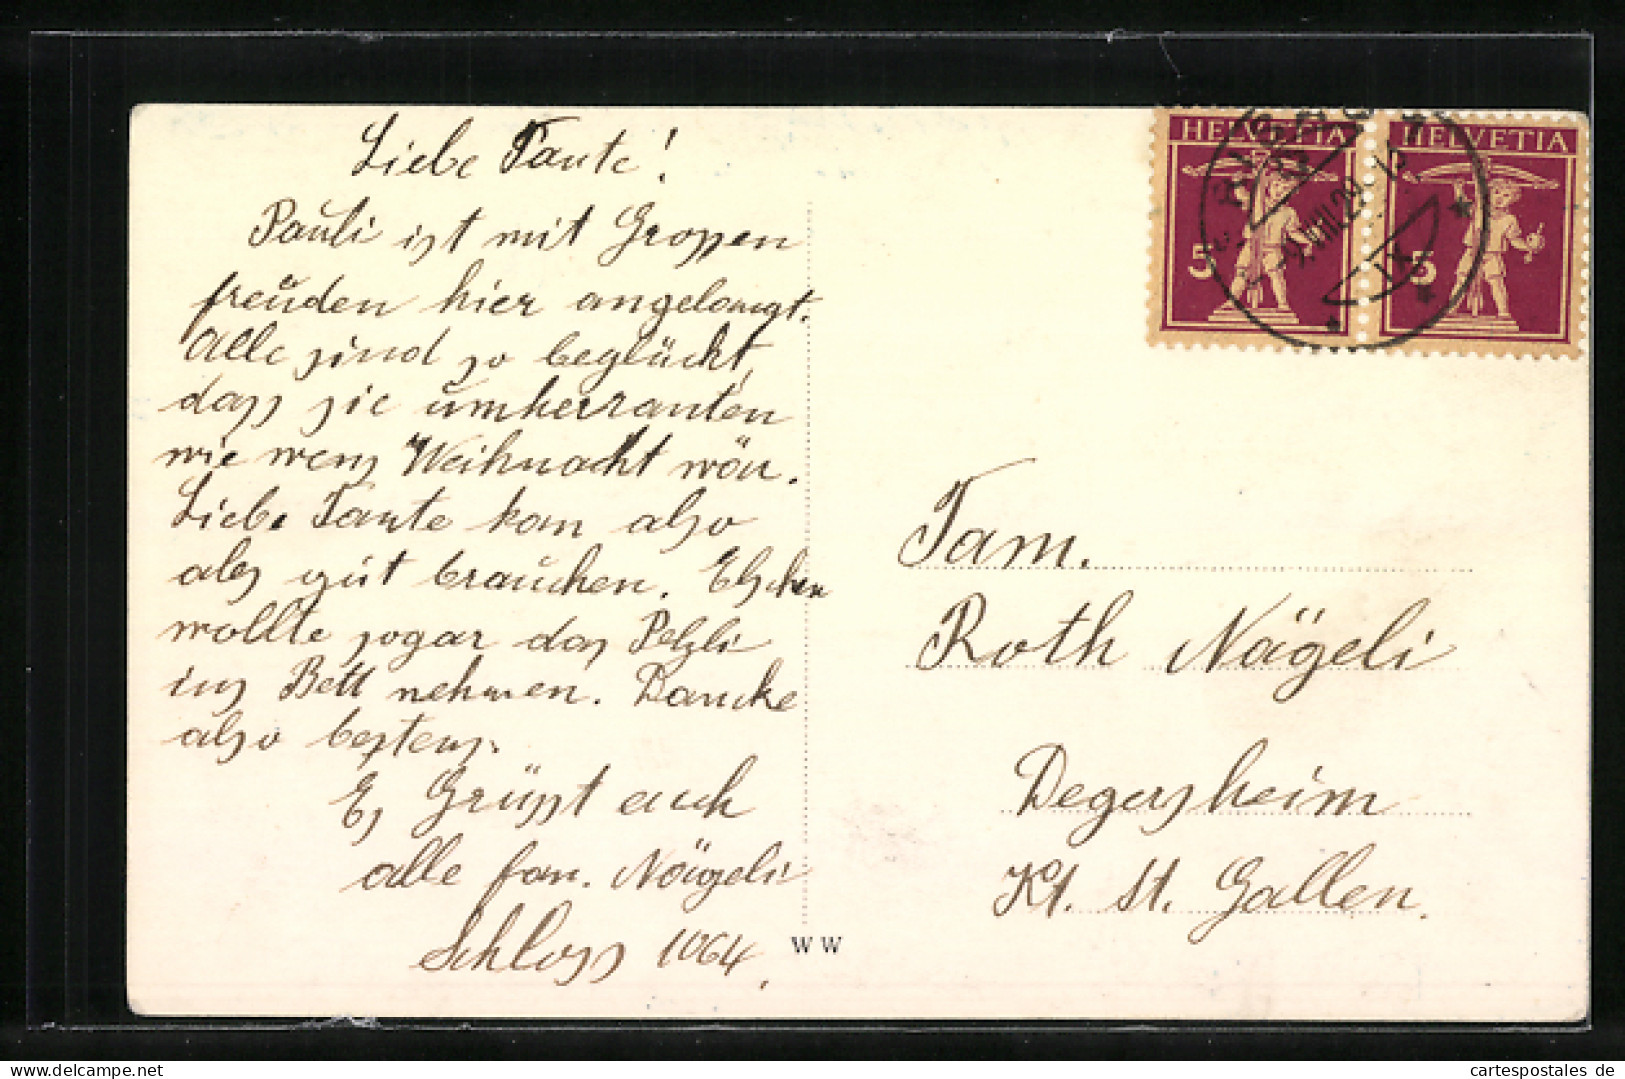 Liebe Tante!
Pauli ist mit Grossen
freuden hier angelangt.
Alle sind so beglückt,
dass sie umherranten
wie wens Weihnacht wär.
Liebe Tante kan also
ales gut brauchen. Elschen
wollte sogar das Pelzli
ins Bett nehmen. Dancke
also bestens.
Es Grüsst euch
alle fam. Nägeli
Schloss 1064.
WW
HELVETIA
5
HELVETIA
5
VIII.29
IX
Fam.
Roth Nägeli
Degersheim
Kt. St. Gallen.
www.cartespostales.com
cartespostales de